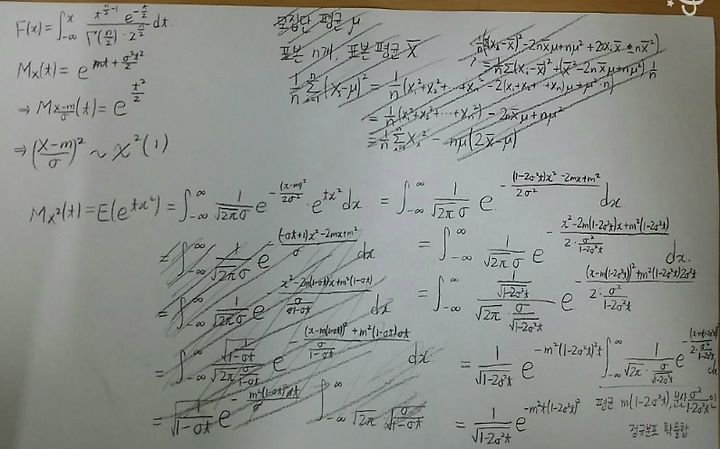 F(x) = ∫_{-∞}^{x} \frac{t^{\frac{n}{2}-1} e^{-\frac{t}{2}}}{Γ(\frac{n}{2})·2^{\frac{n}{2}}} dt.
M_X(t) = e^{mt + \frac{σ²t²}{2}}
⇒ M_{\frac{X-m}{σ}}(t) = e^{\frac{t²}{2}}
⇒ (\frac{X-m}{σ})² ~ χ²(1)
모집단 평균 μ
표본 n개, 표본 평균 X̄
\frac{1}{n} Σ_{i=1}^{n} (X_i-μ)² = \frac{1}{n}(X₁²+X₂²+…+X_n² - 2(X₁+X₂+…+X_n)μ + μ²·n)
= \frac{1}{n}(X₁²+X₂²+…+X_n²) - 2n̄μ+nμ²
= \frac{1}{n} Σ_{i=1}^{n} X_i² - nμ(2X̄-μ)
M_{X²}(t) = E(e^{tx²}) = ∫_{-∞}^{∞} \frac{1}{\sqrt{2π}σ} e^{-\frac{(x-m)²}{2σ²}}·e^{tx²} dx = ∫_{-∞}^{∞} \frac{1}{\sqrt{2π}σ} e^{-\frac{(1-2σ²t)x²-2mx+m²}{2σ²}} dx
= ∫_{-∞}^{∞} \frac{1}{\sqrt{2π}σ} e^{-\frac{(-σt+1)x²-2mx+m²}{σ}} dx
= ∫_{-∞}^{∞} \frac{1}{\sqrt{2π}σ} e^{-\frac{x²-2m(1-σt)x+m²(1-σt)}{\frac{σ}{1-σt}}} dx
= ∫_{-∞}^{∞} \frac{\sqrt{1-σt}}{\sqrt{2π}\frac{σ}{1-σt}} e^{-\frac{(x-m(1-σt))²+m²(1-σt)σt}{\frac{σ}{1-σt}}} dx
= \frac{1}{\sqrt{1-σt}} e^{-\frac{m²(1-σt)²σt}{σ}} ∫_{-∞}^{∞} \sqrt{2π} \frac{σ}{\sqrt{1-σt}}
= ∫_{-∞}^{∞} \frac{1}{\sqrt{2π}σ} e^{-\frac{x²-2m(1-2σ²t)x+m²(1-2σ²t)}{2·\frac{σ²}{1-2σ²t}}} dx.
= ∫_{-∞}^{∞} \frac{\frac{1}{\sqrt{1-2σ²t}}}{\sqrt{2π}·\frac{σ}{\sqrt{1-2σ²t}}} e^{-\frac{(x-m(1-2σ²t))²+m²(1-2σ²t)2σ²t}{2·\frac{σ²}{1-2σ²t}}}
= \frac{1}{\sqrt{1-2σ²t}} e^{-m²(1-2σ²t)²t} ∫_{-∞}^{∞} \frac{1}{\sqrt{2π}·\frac{σ}{\sqrt{1-2σ²t}}} e^{-\frac{(x-m(1-2σ²t))²}{2·\frac{σ²}{1-2σ²t}}} dx
= \frac{1}{\sqrt{1-2σ²t}} e^{-m²t(1-2σ²t)²}
평균 m(1-2σ²t), 분산 \frac{σ²}{1-2σ²t}인
정규분포 확률합